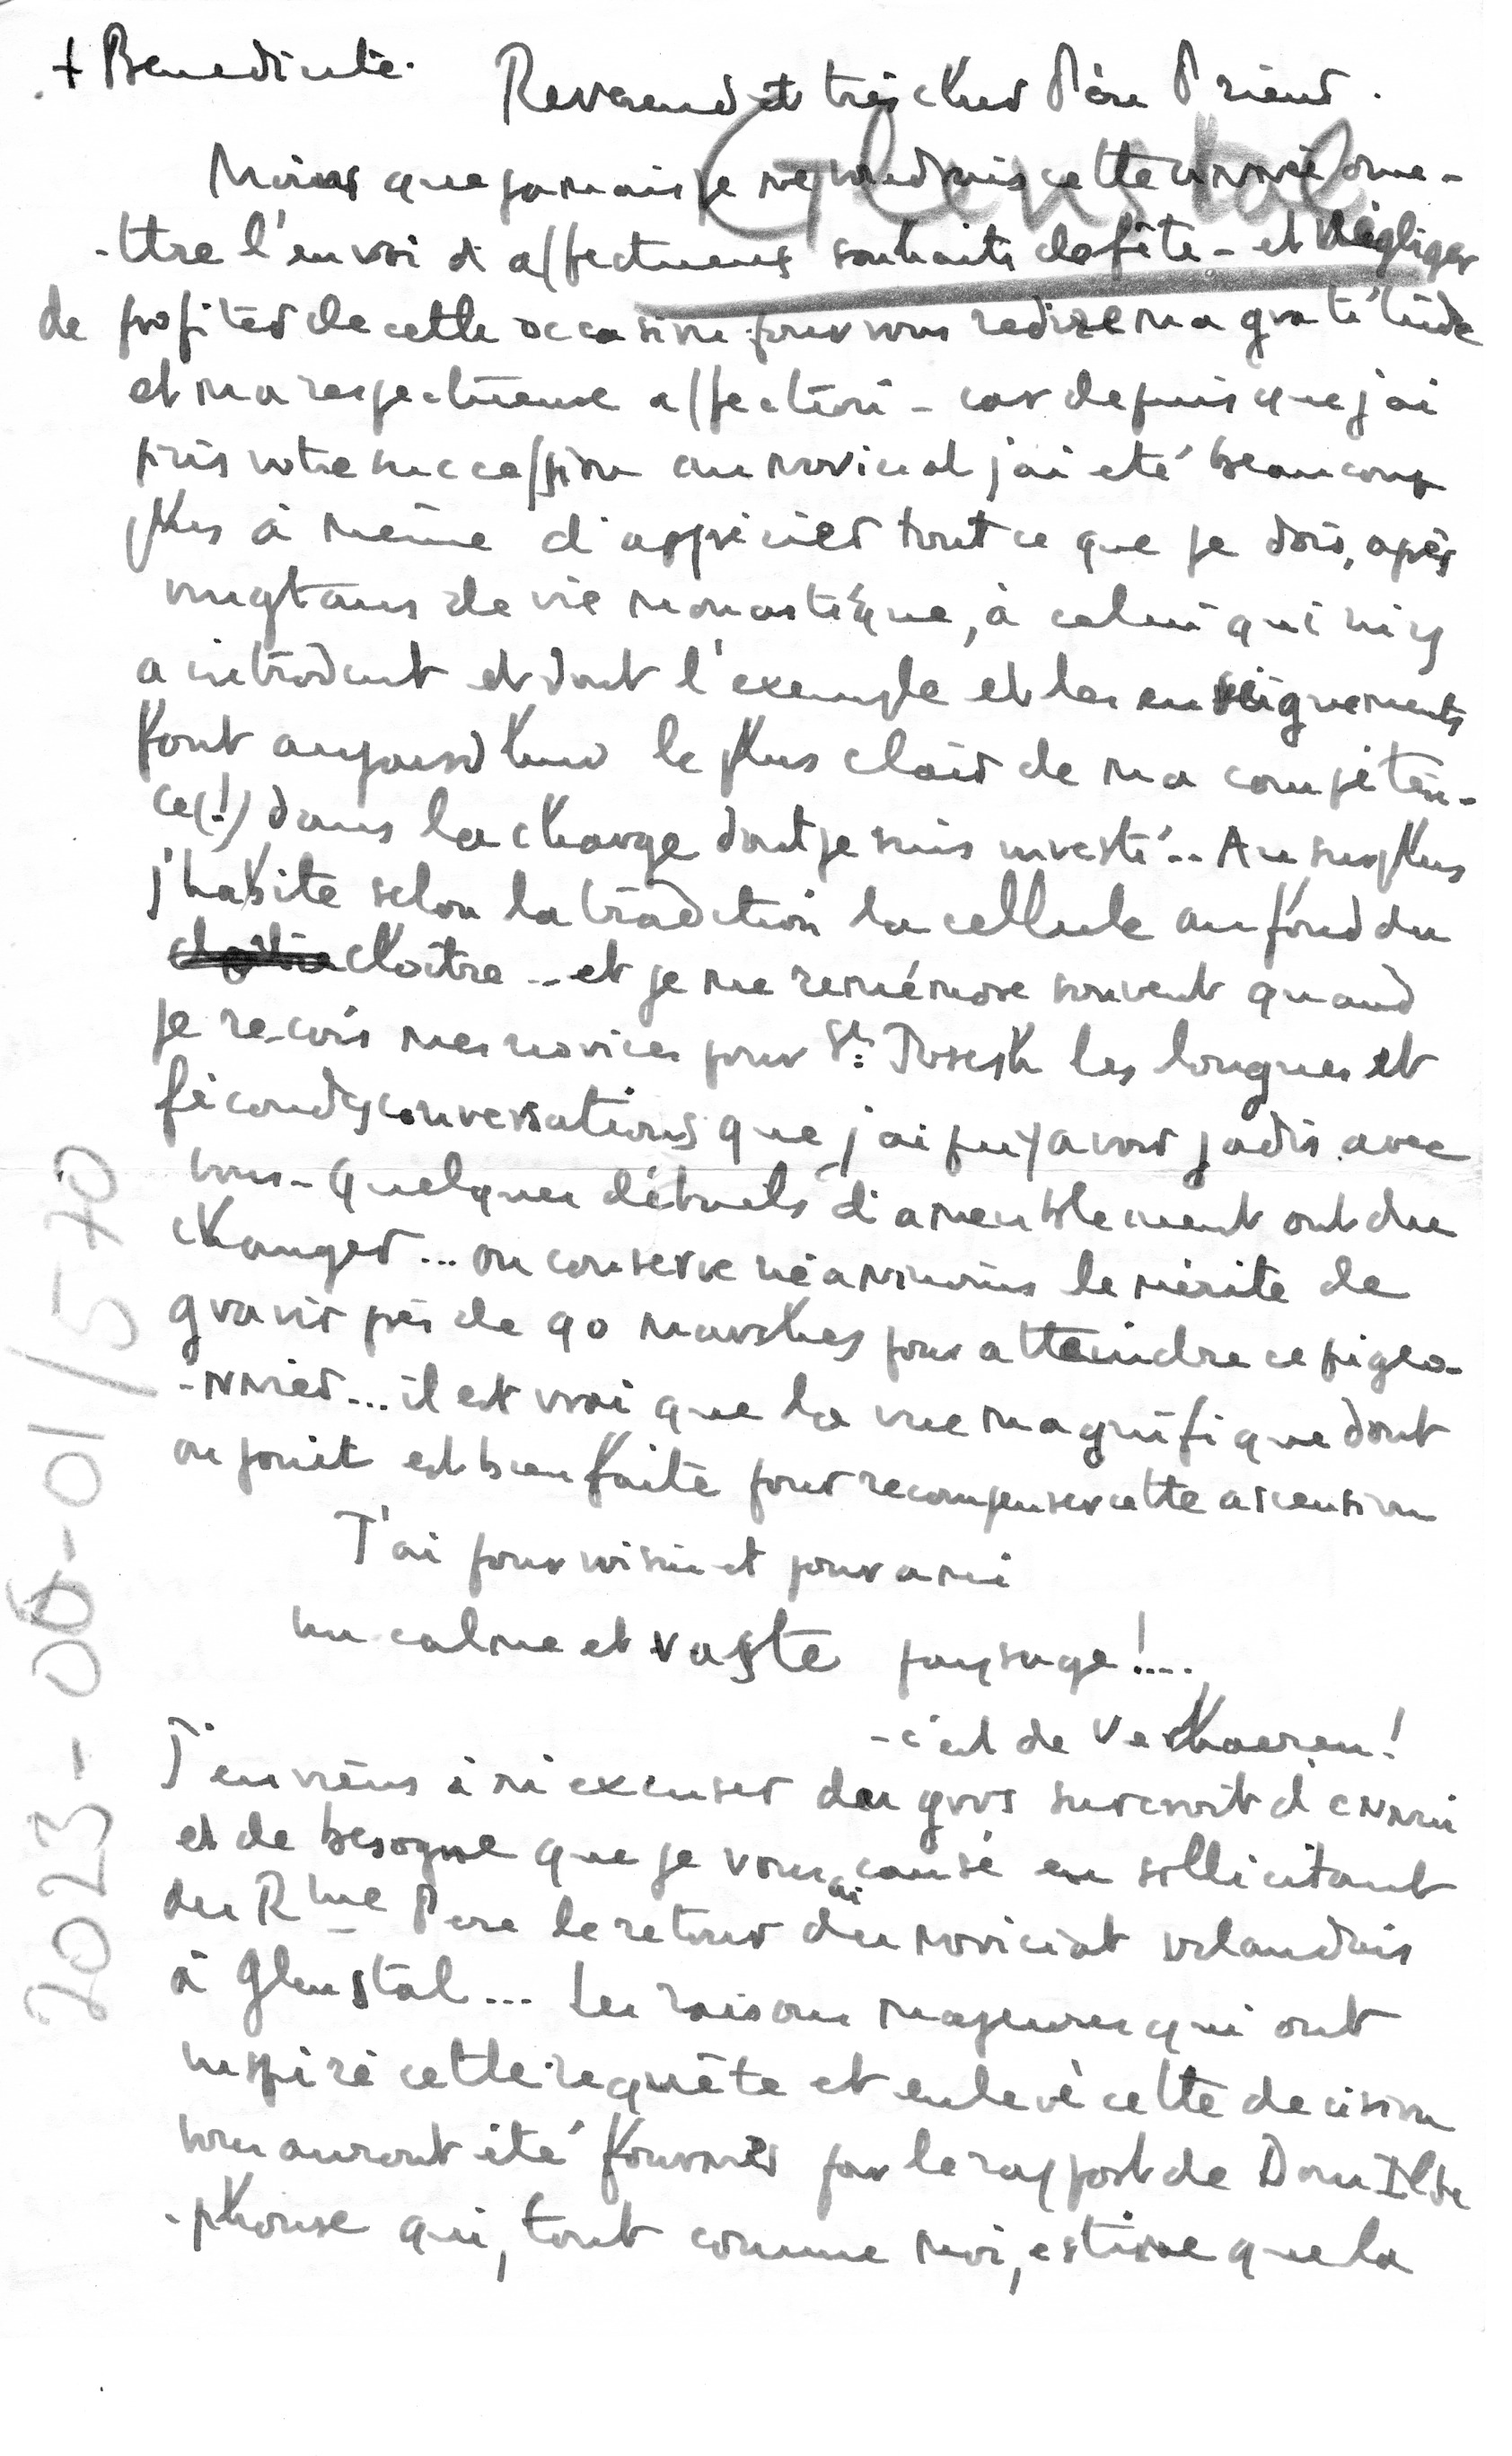 + Benedicite.
Reverend et très cher Père Prieur.
Glenstal
Moins que jamais je ne voudrais cette année ome-
-ttre l'envoi d'affectueux souhaits de fête - et négliger
de profiter de cette occasion pour vous redire ma gratitude
et ma respectueuse affection - car depuis que j'ai
pris votre succession au noviciat j'ai eté beaucoup
plus à même d'apprécier tout ce que je dois, après
vingt ans de vie monastique, à celui qui m'y
a introduit et dont l'exemple et les enseignements
font aujourd'hui le plus clair de ma compéten-
ce (!) dans la charge dont je suis investi... Au surplus
j'habite selon la tradition la cellule au fond du
cloître - et je me remémore souvent quand
je reçois mes novices pour St: Joseph les longues et
fécondes conversations que j'ai pu y avoir jadis avec
vous - quelques détails d'ameublement ont du
changer... on conserve néanmoins le mérite de
gravir près de 90 marches pour atteindre ce pigeo-
-nnier... il est vrai que la vue magnifique dont
on jouit est bien faite pour recompenser cette ascension
J'ai pour voisin et pour ami
un calme et vaste paysage!....
- c'est de Verhaeren!
J'en viens à m'excuser du gros surcroit d'ennui
et de besogne que je vous ai causé en sollicitant
du Rme Pere le retour du noviciat irlandais
à Glenstal... Les raisons majeures qui ont
inspiré cette requête et enlevé cette decision
vous auront été fournies par le rapport de Dom Ilde
-phonse qui, tout comme moi, estime que la
2023-06-01/570